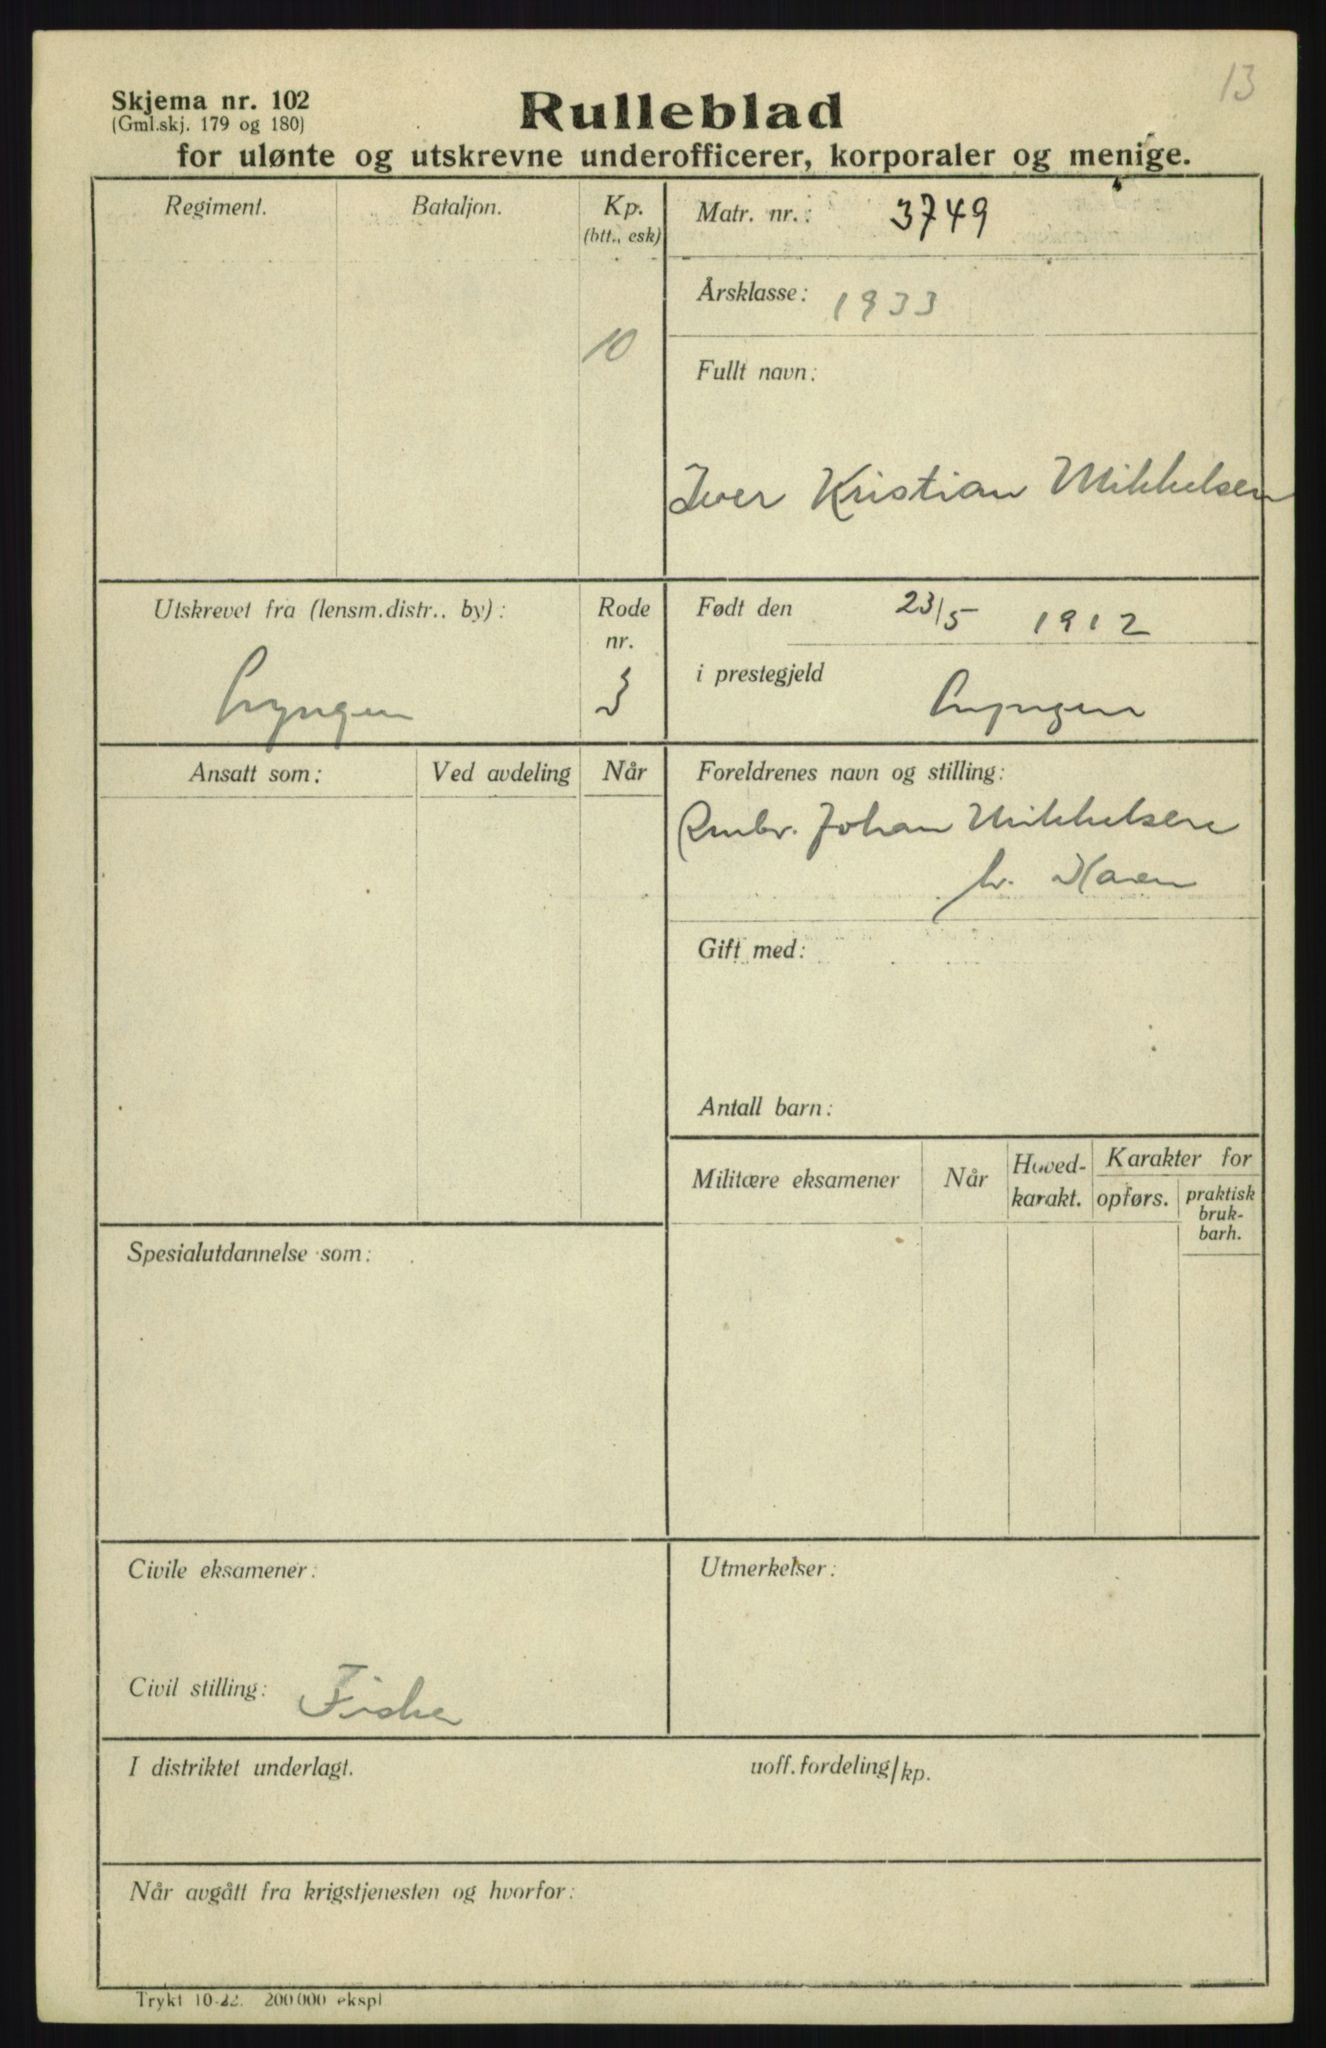 13
Skjema nr. 102
(Gml.skj. 179 og 180)
Rulleblad
for ulønte og utskrevne underofficerer, korporaler og menige.
Regiment.
Bataljon.
Kp.
(btt., esk)
10
Matr. nr.: 3749
Årsklasse: 1933
Fullt navn:
Iver Kristian Mikkelsen
Utskrevet fra (lensm.distr.. by):
Lyngen
Rode
nr.
3
Født den 23/5 1912
i prestegjeld Lyngen
Ansatt som:
Ved avdeling
Når
Foreldrenes navn og stilling:
Johan Mikkelsen
h. Karen
Gift med:
Antall barn:
Militære eksamener
Når
Hoved-
karakt.
Karakter for
opførs.
praktisk
bruk-
barh.
Spesialutdannelse som:
Civile eksamener:
Civil stilling: Fisker
Utmerkelser:
I distriktet underlagt.
uoff. fordeling/kp.
Når avgått fra krigstjenesten og hvorfor:
Trykt 10-22. 200 000 ekspl